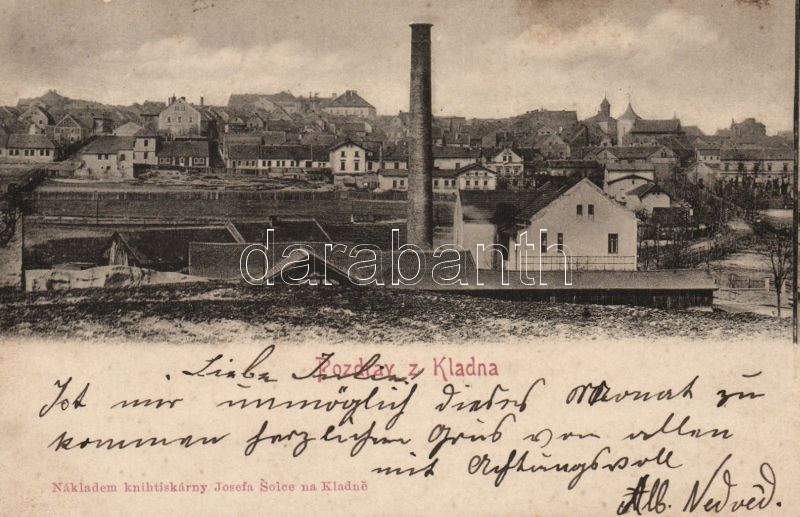 darabanth
Pozdrav z Kladna
Liebe Julie!
Ist mir unmöglich dieses Monat zu
kommen herzlichen Grüs von allen
mit Achtungsvoll
Alb. Nedvěd.
Nákladem knihtiskárny Josefa Šolce na Kladně